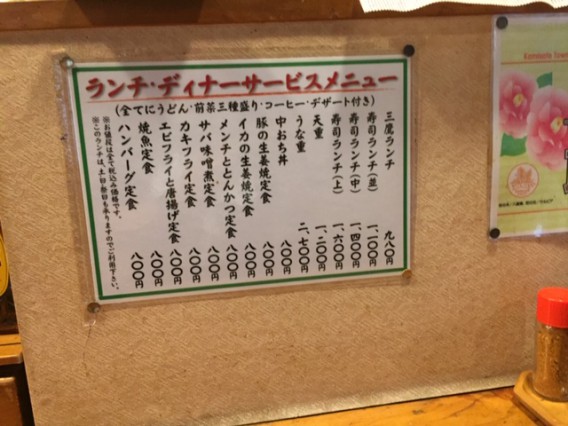 ランチ・ディナーサービスメニュー
(全てにうどん・前菜三種盛り・コーヒー・デザート付き)
三鷹ランチ 九八〇円
寿司ランチ(並) 一、一〇〇円
寿司ランチ(中) 一、四〇〇円
寿司ランチ(上) 一、六〇〇円
天重 一、二〇〇円
うな重 二、七〇〇円
中おち丼 八〇〇円
豚の生姜焼定食 八〇〇円
イカの生姜焼定食 八〇〇円
メンチととんかつ定食 八〇〇円
サバ味噌煮定食 八〇〇円
カキフライ定食 八〇〇円
エビフライと唐揚げ定食 八〇〇円
焼魚定食 八〇〇円
ハンバーグ定食 八〇〇円
※お値段は全て税込み価格です。
※このランチは、土・日・祭日も承りますのでご利用下さい。